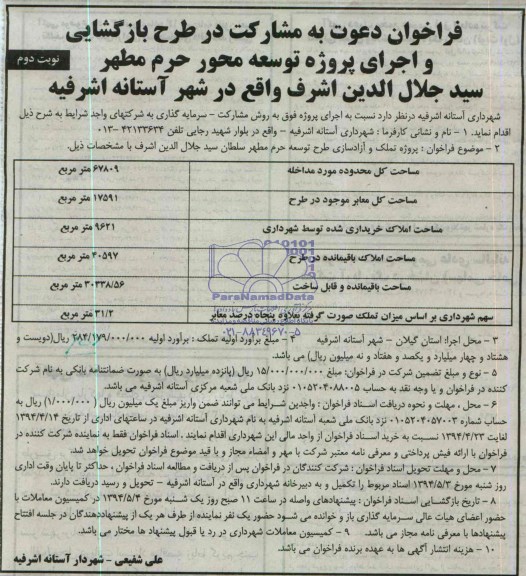 فراخوان دعوت به مشارکت در طرح بازگشایی
و اجرای پروژه توسعه محور حرم مطهر
نوبت دوم
سید جلال الدین اشرف واقع در شهر آستانه اشرفیه
شهرداری آستانه اشرفیه درنظر دارد نسبت به اجرای پروژه فوق به روش مشارکت – سرمایه گذاری به شرکتهای واجد شرایط به شرح ذیل
اقدام نماید. ۱ – نام و نشانی کارفرما : شهرداری آستانه اشرفیه – واقع در بلوار شهید رجایی تلفن ۴۲۱۳۳۶۳۴-۰۱۳
۲ – موضوع فراخوان : پروژه تملک و آزادسازی طرح توسعه حرم مطهر سلطان سید جلال الدین اشرف با مشخصات ذیل.
مساحت کل محدوده مورد مداخله ۶۷۸۰۹ متر مربع
مساحت کل معابر موجود در طرح ۱۷۵۹۱ متر مربع
مساحت املاک خریداری شده توسط شهرداری ۹۶۲۱ متر مربع
مساحت املاک باقیمانده در طرح ۴۰۵۹۷ متر مربع
مساحت باقیمانده و قابل ساخت ۳۰۳۳۸/۵۶ متر مربع
سهم شهرداری بر اساس میزان تملک صورت گرفته بعلاوه پنجاه درصد معابر ۳۱/۲ متر مربع
ParaNamadData
۰۲۱-۸۸۳۴۹۶۷۰-۵
۳ – محل اجرا: استان گیلان – شهر آستانه اشرفیه ۴ – مبلغ برآورد اولیه تملک : برآورد اولیه ۲۸۴/۱۷۹/۰۰۰/۰۰۰ ریال(دویست و
هشتاد و چهار میلیارد و یکصد و هفتاد و نه میلیون ریال) می باشد.
۵ – نوع و مبلغ تضمین شرکت در فراخوان: مبلغ ۱۵/۰۰۰/۰۰۰/۰۰۰ ریال (پانزده میلیارد ریال) به صورت ضمانتنامه بانکی به نام شرکت
کننده در فراخوان و یا وجه نقد به حساب ۰۱۰۵۲۰۴۰۸۸۰۰۵ نزد بانک ملی شعبه مرکزی آستانه اشرفیه می باشد.
۶ – محل ، مهلت و نحوه دریافت اسناد فراخوان : واجدین شرایط می توانند ضمن واریز مبلغ یک میلیون ریال (۱/۰۰۰/۰۰۰) ریال به
حساب شماره ۰۱۰۵۲۰۴۰۵۷۰۰۳ نزد بانک ملی شعبه آستانه اشرفیه به نام شهرداری آستانه اشرفیه در ساعتهای اداری از تاریخ ۱۳۹۴/۴/۱۴
لغایت ۱۳۹۴/۴/۲۳ نسبت به خرید اسناد فراخوان از واحد مالی این شهرداری اقدام نمایند . اسناد فراخوان فقط به نماینده شرکت کننده در
فراخوان با ارائه فیش پرداختی و معرفی نامه معتبر شرکت با مهر و امضاء مجاز و با قید موضوع فراخوان تحویل خواهد شد.
۷ – محل و مهلت تحویل اسناد فراخوان : شرکت کنندگان در فراخوان پس از دریافت و مطالعه اسناد فراخوان ، حداکثر تا پایان وقت اداری
روز شنبه مورخ ۱۳۹۴/۵/۳ اسناد مربوط را تکمیل و به دبیرخانه شهرداری واقع در آستانه اشرفیه – تحویل و رسید دریافت دارند.
۸ – تاریخ بازگشایی اسناد فراخوان : پیشنهادهای واصله در ساعت ۱۱ صبح روز یک شنبه مورخ ۱۳۹۴/۵/۴ در کمیسیون معاملات با
حضور اعضای هیات عالی سرمایه گذاری باز و خوانده می شود حضور یک نفر نماینده از طرف هر یک از پیشنهاددهندگان در جلسه افتتاح
پیشنهادها با معرفی نامه مجاز می باشد. ۹ – کمیسیون معاملات شهرداری در رد یا قبول پیشنهاد ها مختار می باشد.
۱۰ – هزینه انتشار آگهی ها به عهده برنده فراخوان می باشد.
علی شفیعی – شهردار آستانه اشرفیه